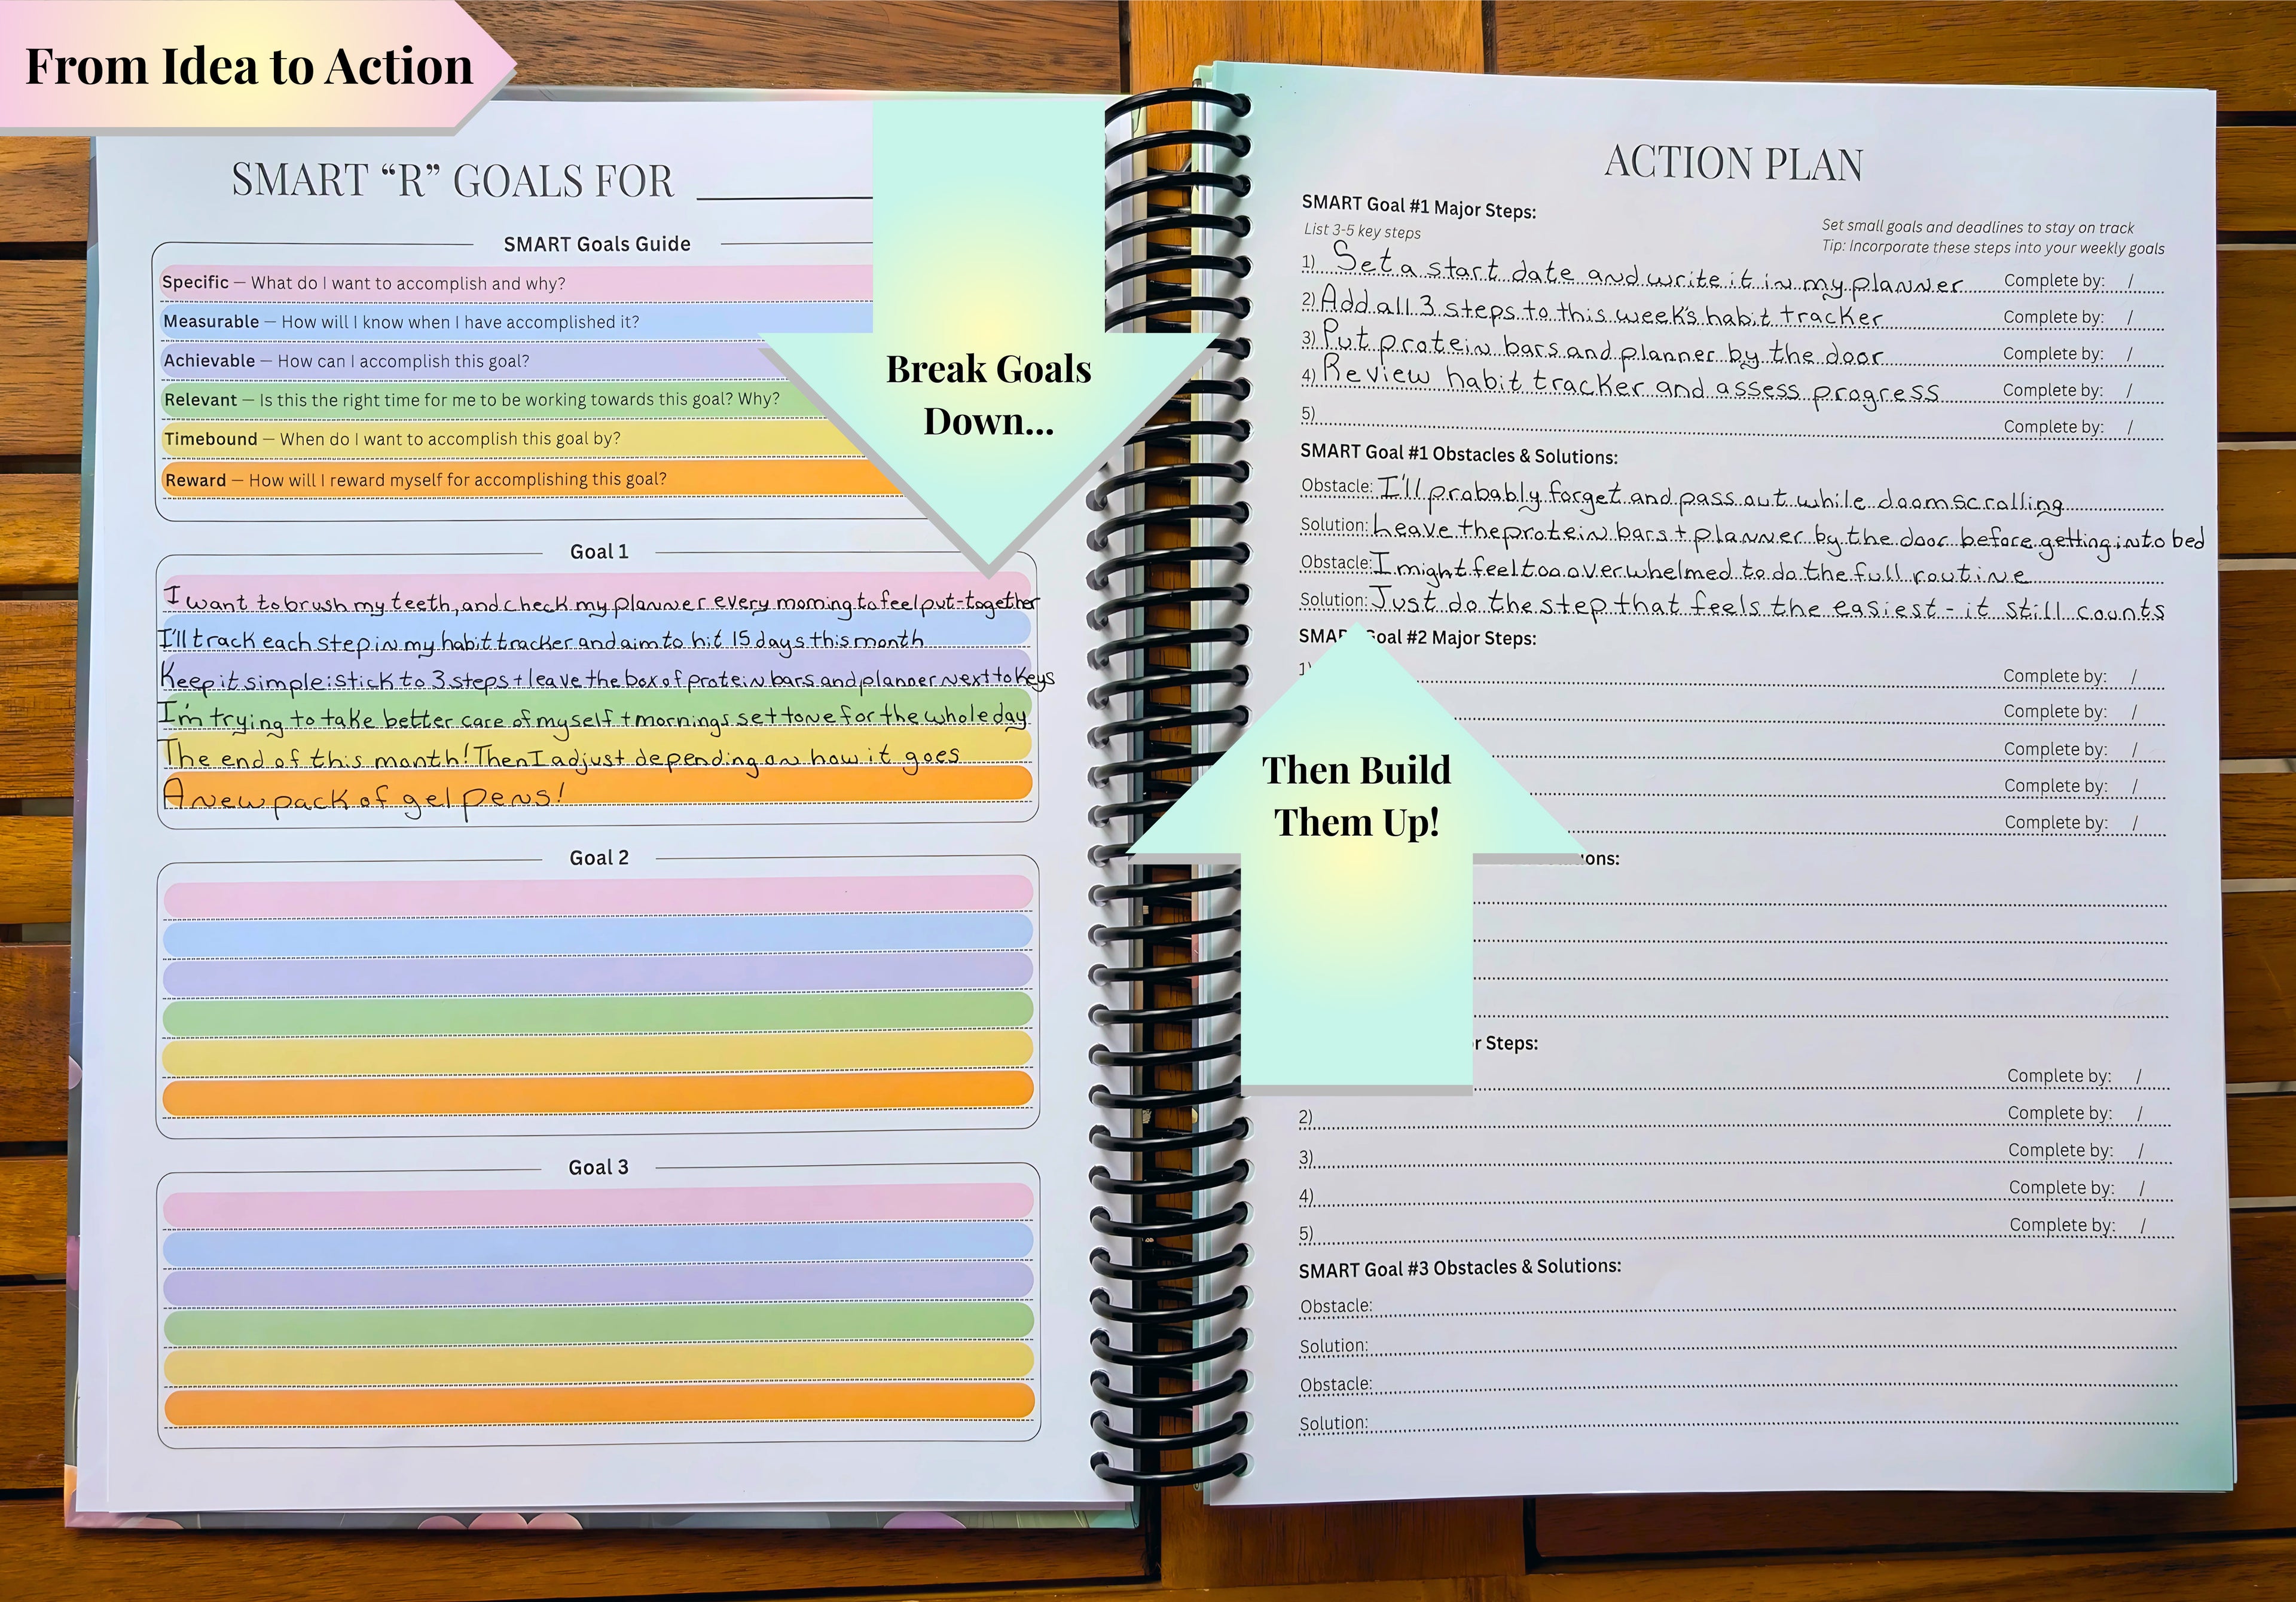 From Idea to Action
SMART “R” GOALS FOR
SMART Goals Guide
Specific — What do I want to accomplish and why?
Measurable — How will I know when I have accomplished it?
Achievable — How can I accomplish this goal?
Relevant — Is this the right time for me to be working towards this goal? Why?
Timebound — When do I want to accomplish this goal by?
Reward — How will I reward myself for accomplishing this goal?
Break Goals
Down...
Goal 1
I want to brush my teeth, and check my planner every morning to feel put-together
I'll track each step in my habit tracker and aim to hit 15 days this month
Keep it simple: stick to 3 steps + leave the box of protein bars and planner next to keys
I'm trying to take better care of myself + mornings set tone for the whole day
The end of this month! Then I adjust depending on how it goes
A new pack of gel pens!
Goal 2
Goal 3
ACTION PLAN
SMART Goal #1 Major Steps:
List 3-5 key steps
Set small goals and deadlines to stay on track
Tip: Incorporate these steps into your weekly goals
1) Set a start date and write it in my planner Complete by: /
2) Add all 3 steps to this week's habit tracker Complete by: /
3) Put protein bars and planner by the door Complete by: /
4) Review habit tracker and assess progress Complete by: /
5) Complete by: /
SMART Goal #1 Obstacles & Solutions:
Obstacle: I'll probably forget and pass out while doomscrolling
Solution: Leave the protein bars + planner by the door before getting into bed
Obstacle: I might feel too overwhelmed to do the full routine
Solution: Just do the step that feels the easiest - it still counts
Goal #2 Major Steps:
1) Complete by: /
Complete by: /
Complete by: /
Complete by: /
Complete by: /
Then Build
Them Up!
Steps:
Complete by: /
2) Complete by: /
3) Complete by: /
4) Complete by: /
5) Complete by: /
SMART Goal #3 Obstacles & Solutions:
Obstacle:
Solution:
Obstacle:
Solution: